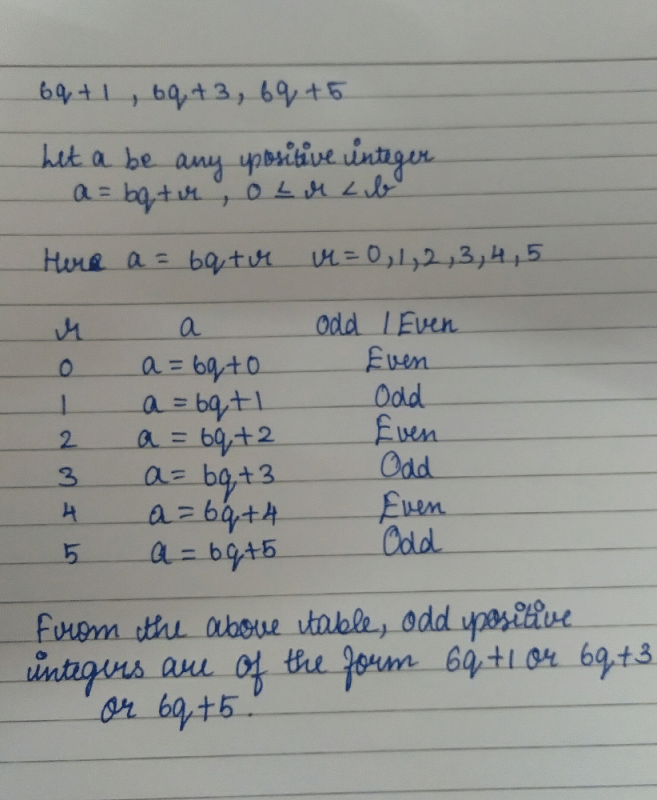 6q+1 , 6q+3, 6q+5
Let a be any positive integer
a = bq+r , 0 ≤ r < b
Here a = 6q+r r=0,1,2,3,4,5
r a Odd / Even
0 a = 6q+0 Even
1 a = 6q+1 Odd
2 a = 6q+2 Even
3 a = 6q+3 Odd
4 a = 6q+4 Even
5 a = 6q+5 Odd
From the above table, odd positive
integers are of the form 6q+1 or 6q+3
or 6q+5.